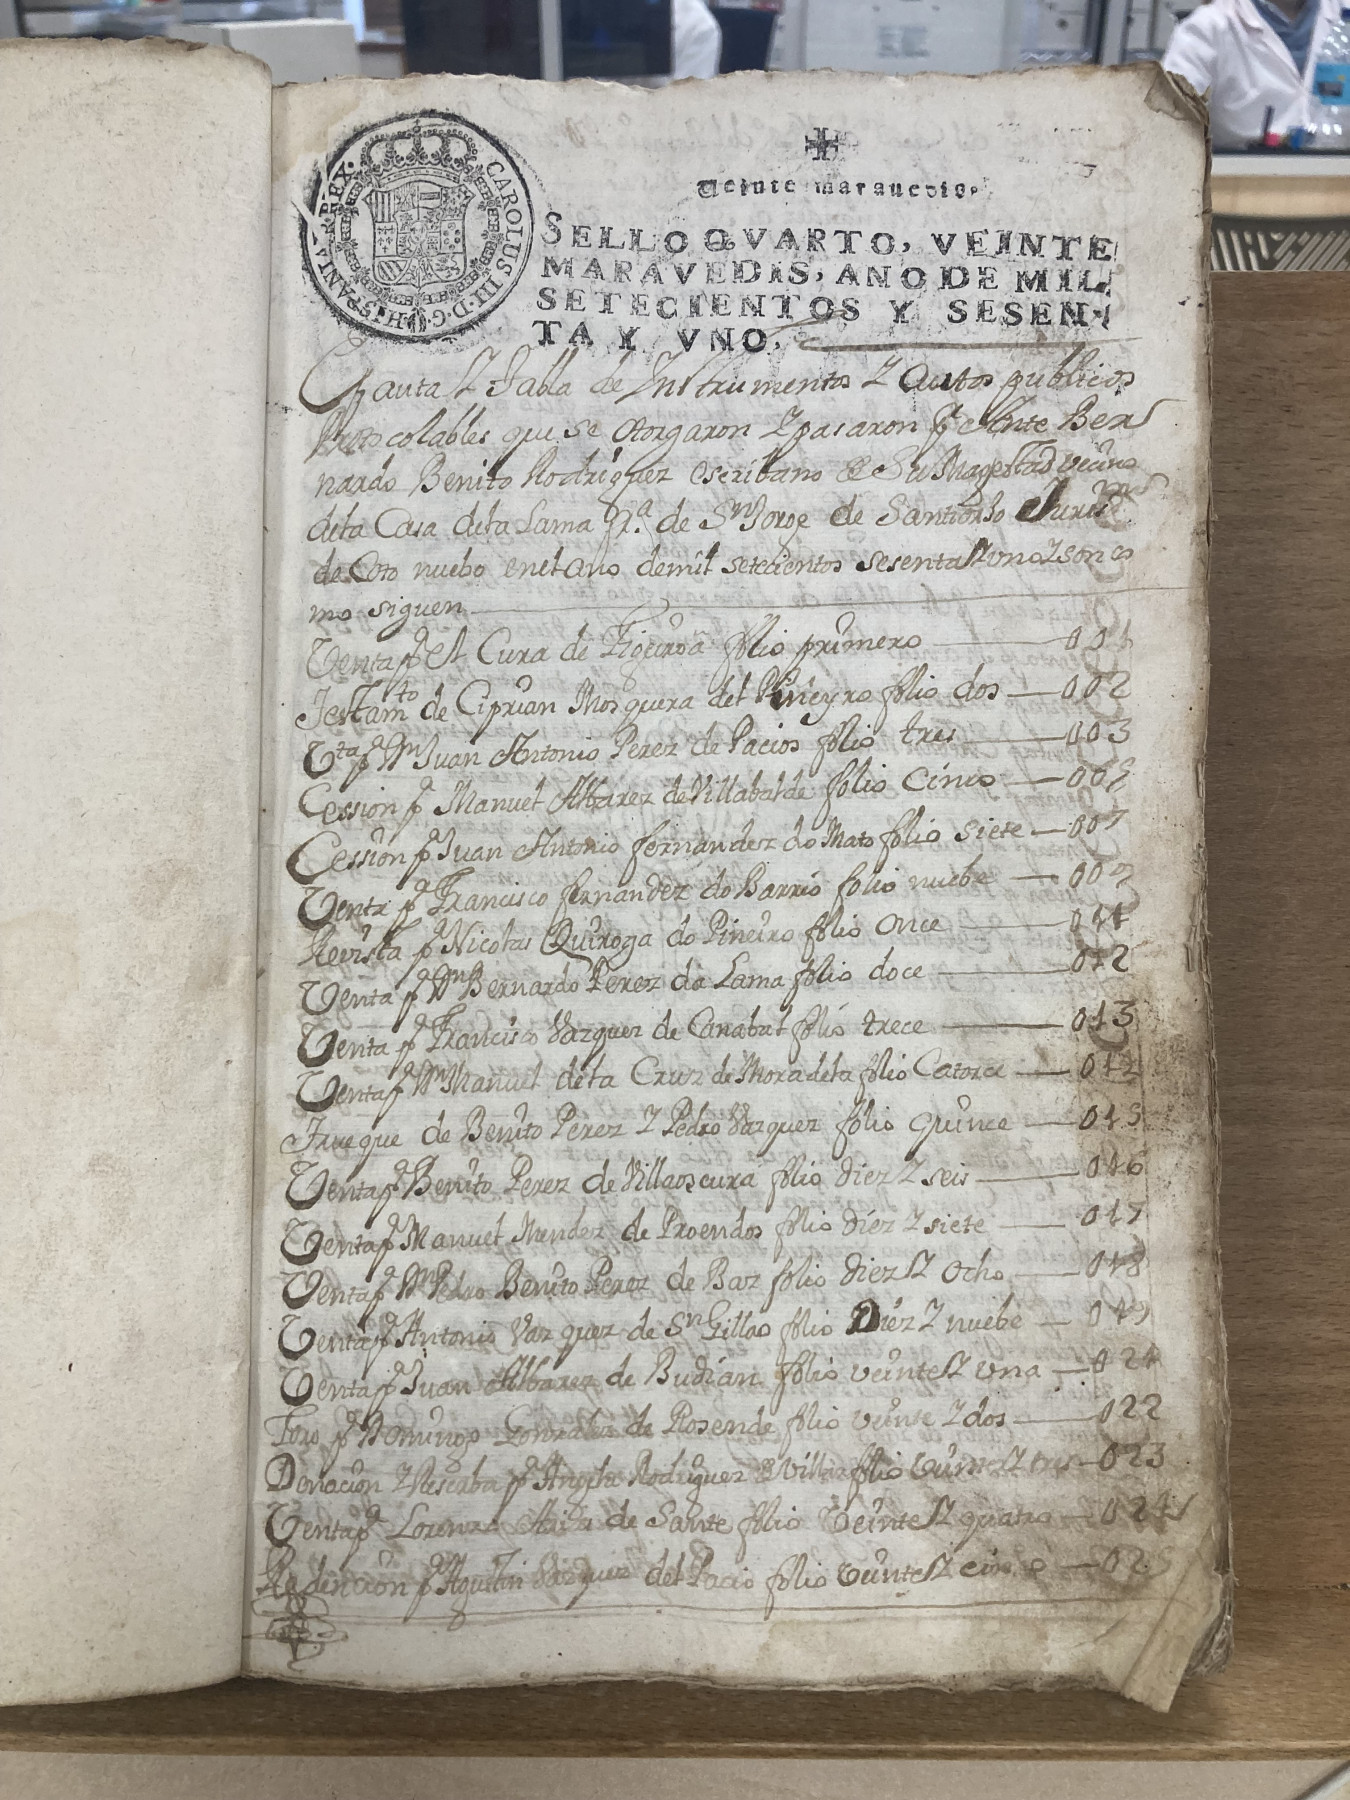 CAROLUS III·D·G·HISPANIAR·REX·
Veinte maravedis.
SELLO QVARTO, VEINTE
MARAVEDIS, AÑO DE MIL
SETECIENTOS Y SESEN-
TA Y VNO.
Pauta Y Tabla de Instrumentos Y Autos publicos
Protocolables que se otorgaron Y pasaron pr Ante Ber
nardo Benito Rodriguez escribano de Su Magestad vecino
de la Casa de la Lama de Sn Jorge de Santiorjo Juris
de Coto nuebo en el año de mil setecientos sesenta Y uno Y son co
mo siguen
Venta pr el Cura de Figueroa folio primero 001
Testamto de Ciprian Mosquera del Piñeyro folio dos 002
Vta pr Dn Juan Antonio Perez de Pacios folio tres 003
Cession pr Manuel Albarez de Villabalde folio Cinco 005
Cession pr Juan Antonio fernandez do Mato folio siete 007
Venta pr Francisco fernandez do Barrio folio nuebe 009
Revista pr Nicolas Quiroga do Piñeiro folio Once 011
Venta pr Dn Bernardo Perez da Lama folio doce 012
Venta pr Francisco Vazquez de Canabal folio trece 013
Venta pr Dn Manuel de la Cruz de Moradela folio Catorce 014
Trueque de Benito Perez Y Pedro Vazquez folio Quince 015
Venta pr Benito Perez de Villaoscura folio diez Y seis 016
Venta pr Manuel Mendez de Proendos folio diez Y siete 017
Venta pr Dn Pedro Benito Perez de Baz folio diez Y Ocho 018
Venta pr Antonio Vazquez de Sn Gillao folio Diez Y nuebe 019
Venta pr Juan Albarez de Budian folio veinte Y una 021
Foro pr Domingo Gonzalez de Rosende folio veinte Y dos 022
Donacion Y Reserba pr Angela Rodriguez de Villar folio veinte Y tres 023
Venta pr Lorenzo de Sante folio Veinte Y quatro 024
Redencion pr Agustin Vazquez del Pacio folio veinte Y cinco 025